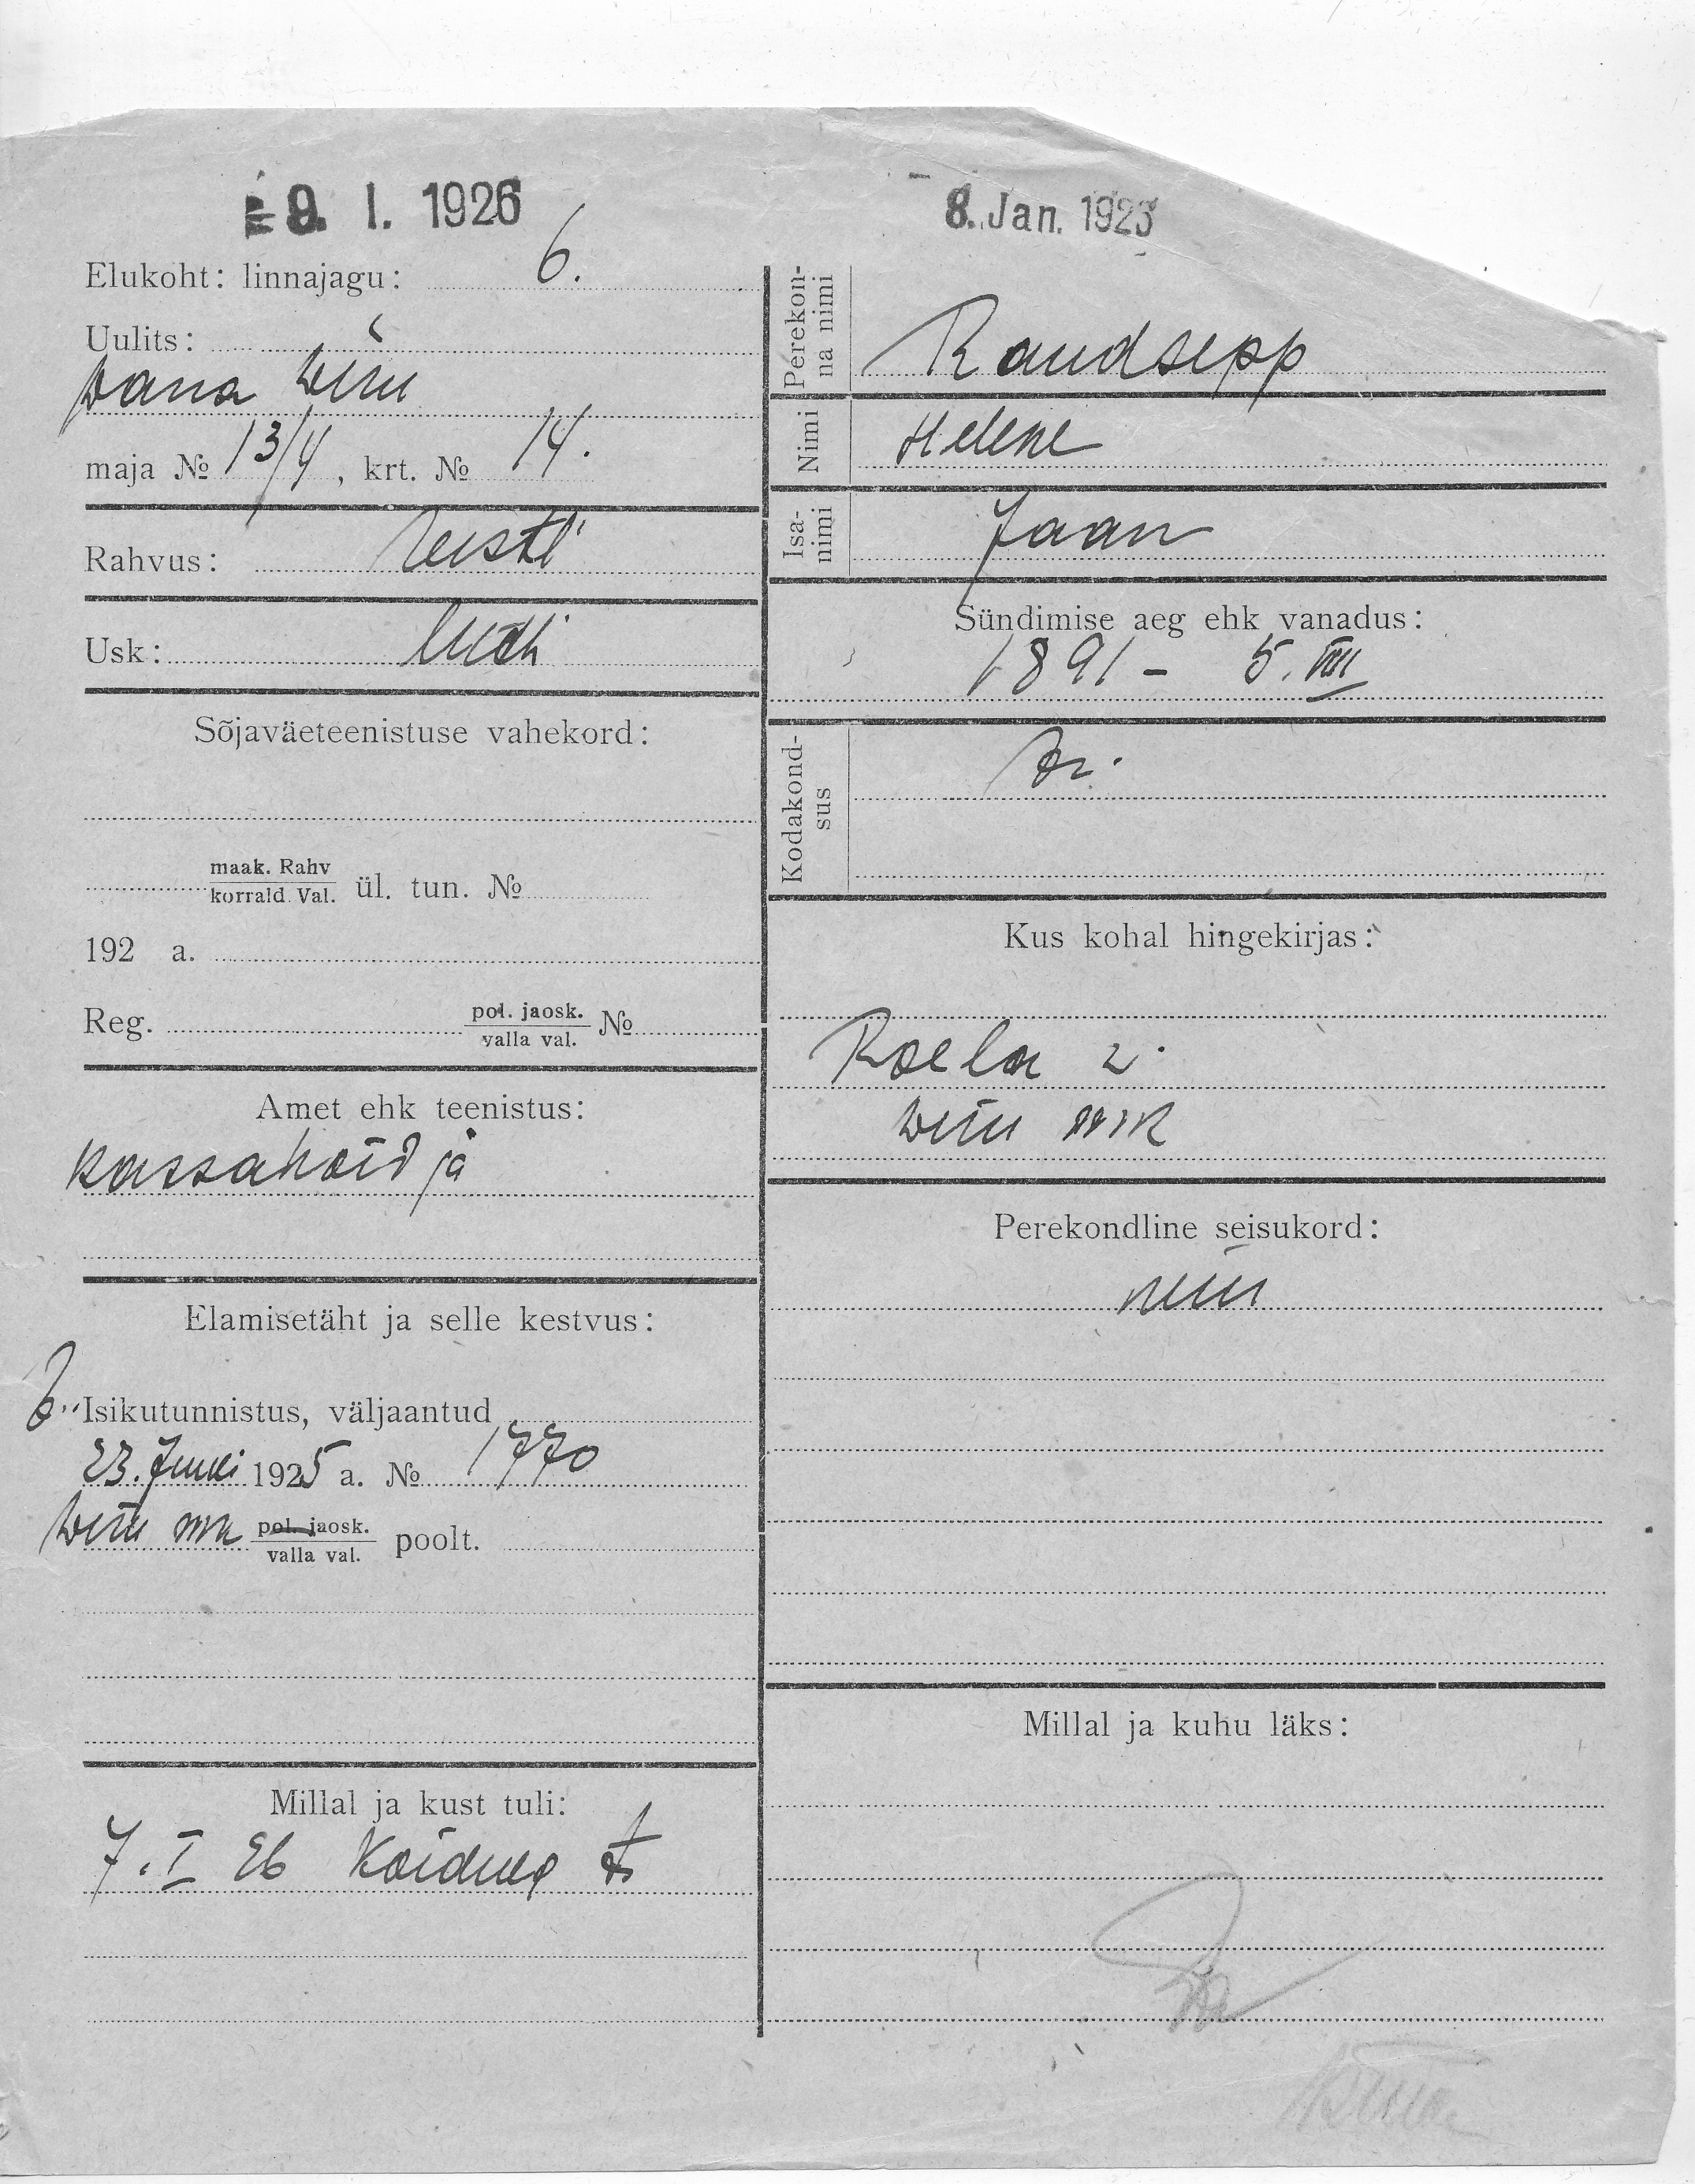 9. I. 1926
Elukoht: linnajagu: 6.
Uulits:
wana wiru
maja № 13/4, krt. № 14.
Rahvus: eesti
Usk: luth
Sõjaväeteenistuse vahekord:
maak. Rahv
korrald. Val. ül. tun. №
192 a.
Reg. pol. jaosk.
valla val. №
Amet ehk teenistus:
kassahoidja
Elamisetäht ja selle kestvus:
Isikutunnistus, väljaantud
23. Juuli 1925 a. № 1770
wiru mk pol. jaosk.
valla val. poolt.
Millal ja kust tuli:
7. I 26 Koidula
8. Jan. 1926
Perekon-
na nimi
Raudsepp
Nimi
Helene
Isa-
nimi
Jaan
Sündimise aeg ehk vanadus:
1891 - 5. VIII
Kodakond-
sus
Kus kohal hingekirjas:
Roela v.
wiru mk
Perekondline seisukord:
neiu
Millal ja kuhu läks: